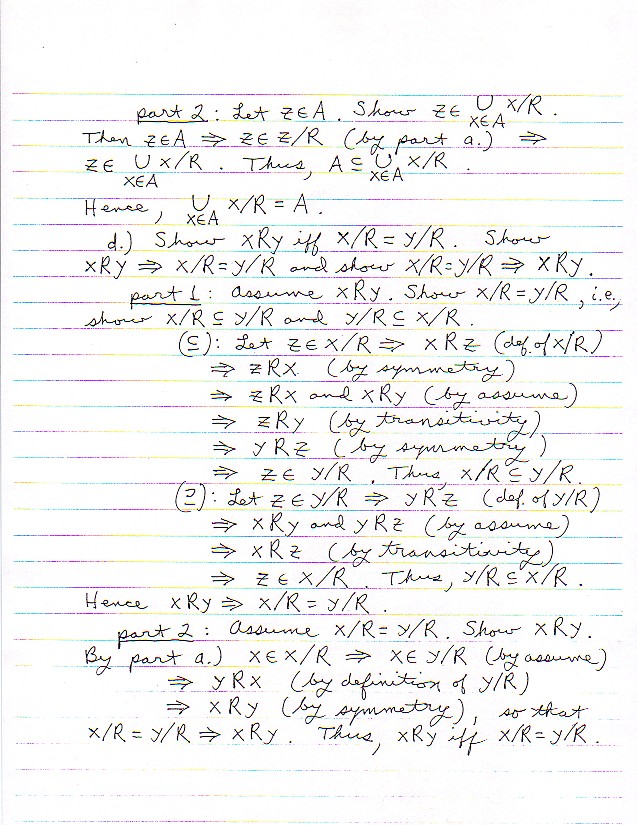 part 2: Let z∈A. Show z∈ ∪ x/R.
x∈A
Then z∈A ⇒ z∈z/R (by part a.) ⇒
z∈ ∪ x/R. Thus, A⊆ ∪ x/R.
x∈A x∈A
Hence, ∪ x/R = A.
x∈A
d.) Show xRy iff x/R = y/R. Show
xRy ⇒ x/R=y/R and show x/R=y/R ⇒ xRy.
part 1: Assume xRy. Show x/R=y/R, i.e.,
show x/R⊆y/R and y/R⊆x/R.
(⊆): Let z∈x/R ⇒ xRz (def. of x/R)
⇒ zRx (by symmetry)
⇒ zRx and xRy (by assume)
⇒ zRy (by transitivity)
⇒ yRz (by symmetry)
⇒ z∈y/R. Thus, x/R⊆y/R.
(⊇): Let z∈y/R ⇒ yRz (def. of y/R)
⇒ xRy and yRz (by assume)
⇒ xRz (by transitivity)
⇒ z∈x/R. Thus, y/R⊆x/R.
Hence xRy ⇒ x/R=y/R.
part 2: Assume x/R=y/R. Show xRy.
By part a.) x∈x/R ⇒ x∈y/R (by assume)
⇒ yRx (by definition of y/R)
⇒ xRy (by symmetry), so that
x/R=y/R ⇒ xRy. Thus, xRy iff x/R=y/R.